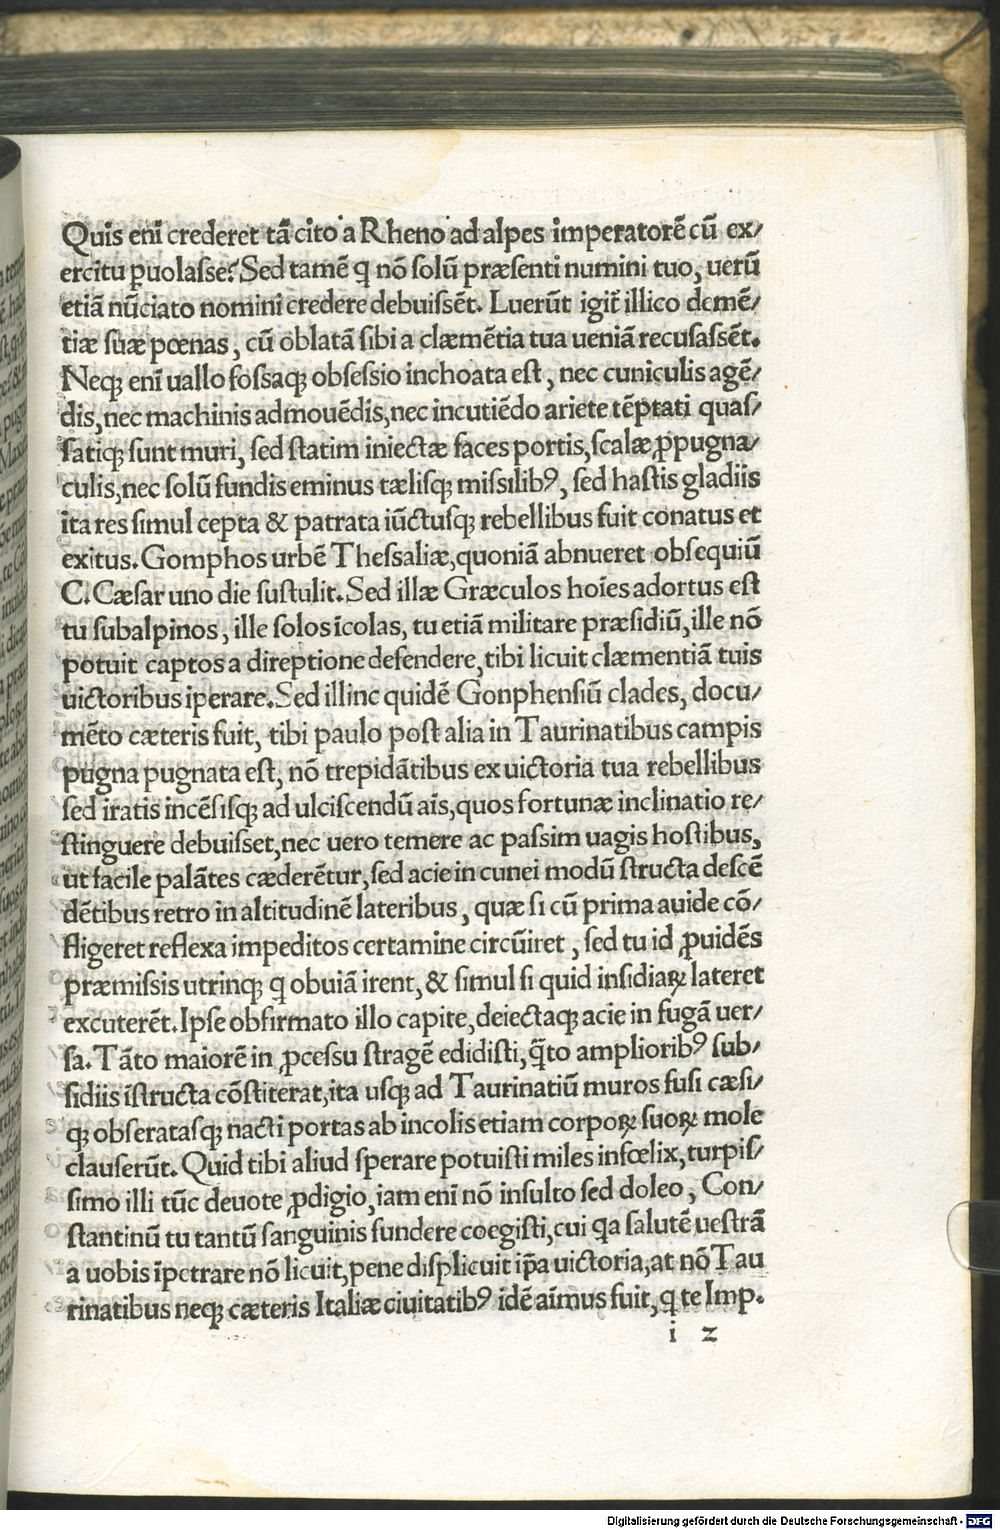 Quis enī crederet tā cito a Rheno ad alpes imperatorē cū ex/
ercitu ꝑuolasse? Sed tamē q nō solū præsenti numini tuo, uerū
etiā nūciato nomini credere debuissēt. Luerūt igit̃ illico demē/
tiæ suæ pœnas, cū oblatā sibi a clæmētia tua ueniā recusassēt.
Neqꝫ enī uallo fossaqꝫ obsessio inchoata est, nec cuniculis agē/
dis, nec machinis admouēdis, nec incutiēdo ariete tēptati quas/
satiqꝫ sunt muri, sed statim iniectæ faces portis, scalæ ꝓpugna/
culis, nec solū fundis eminus tælisqꝫ missilibꝰ, sed hastis gladiis
ita res simul cepta & patrata iūctusqꝫ rebellibus fuit conatus et
exitus. Gomphos urbē Thessaliæ, quoniā abnueret obsequiū
C. Cæsar uno die sustulit. Sed illæ Græculos hoīes adortus est
tu subalpinos, ille solos īcolas, tu etiā militare præsidiū, ille nō
potuit captos a direptione defendere, tibi licuit clæmentiā tuis
uictoribus iperare. Sed illinc quidē Gonphensiū clades, docu/
mēto cæteris fuit, tibi paulo post alia in Taurinatibus campis
pugna pugnata est, nō trepidātibus ex uictoria tua rebellibus
sed iratis incēsisqꝫ ad ulciscendū aīs, quos fortunæ inclinatio re/
stinguere debuisset, nec uero temere ac passim uagis hostibus,
ut facile palātes cæderētur, sed acie in cunei modū structa descē
dētibus retro in altitudinē lateribus, quæ si cū prima auide cō/
fligeret reflexa impeditos certamine circūiret, sed tu id ꝓuidēs
præmissis utrinqꝫ q obuiā irent, & simul si quid insidiaꝝ lateret
excuterēt. Ipse obfirmato illo capite, deiectaqꝫ acie in fugā uer/
sa. Tāto maiorē in ꝓcessu stragē edidisti, q̄to ampliorib⁹ sub/
sidiis īstructa cōstiterat, ita usqꝫ ad Taurinatiū muros fusi cæsi/
qꝫ obseratasqꝫ nacti portas ab incolis etiam corpoꝝ suoꝝ mole
clauserūt. Quid tibi aliud sperare potuisti miles infœlix, turpis/
simo illi tūc deuote ꝓdigio, iam enī nō insulto sed doleo, Con/
stantinū tu tantū sanguinis fundere coegisti, cui qa salutē uestrā
a uobis īpetrare nō licuit, pene displicuit ip̄a uictoria, at nō Tau
rinatibus neqꝫ cæteris Italiæ ciuitatibꝰ idē aīmus fuit, q te Imp.
i 2
Digitalisierung gefördert durch die Deutsche Forschungsgemeinschaft - DFG